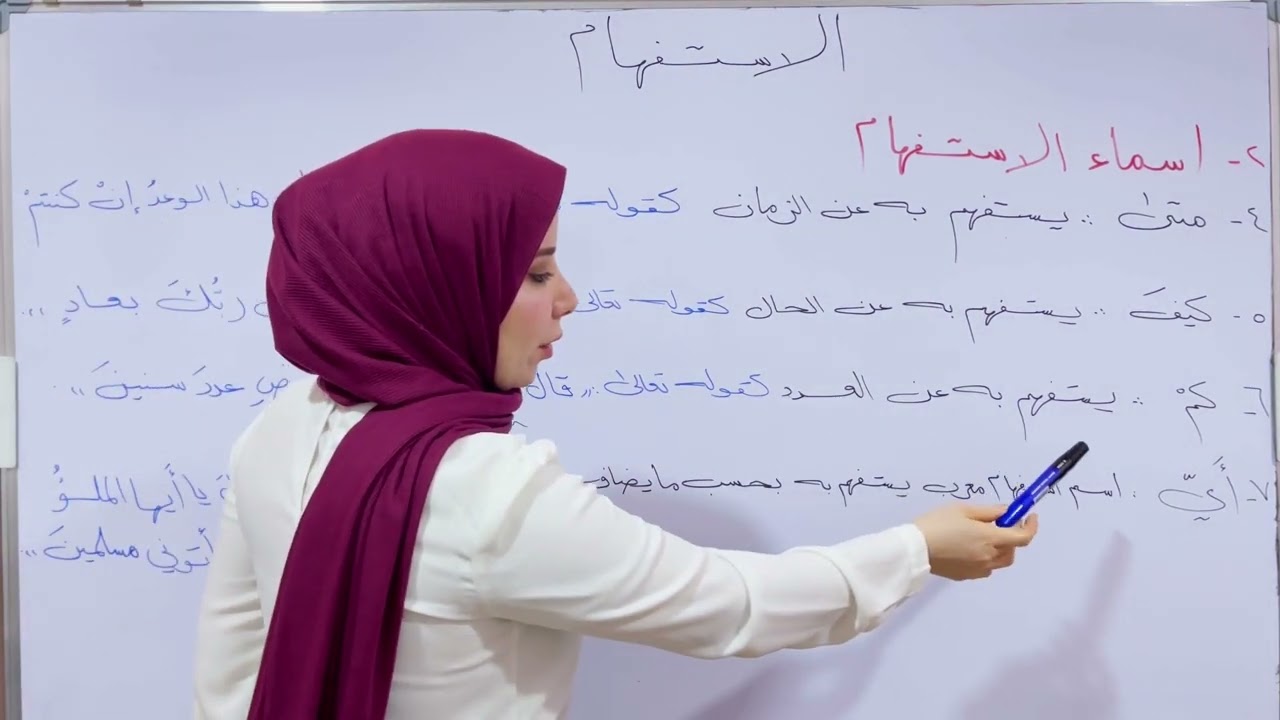 الاستفهام
٢- اسماء الاستفهام
٤- متى : يستفهم به عن الزمان كقوله هذا الوعدُ إنْ كنتمْ
٥- كيفَ : يستفهم به عن الحال كقوله تعالى ربُّكَ بعادٍ ،،
٦- كمْ : يستفهم به عن العدد كقوله تعالى : ,, قال عددَ سنينَ ,,
٧- أَيّ : اسم معرب يستفهم به بحسب ما يضاف يا أَيها الملؤُ
أتوني مسلمينَ ,,